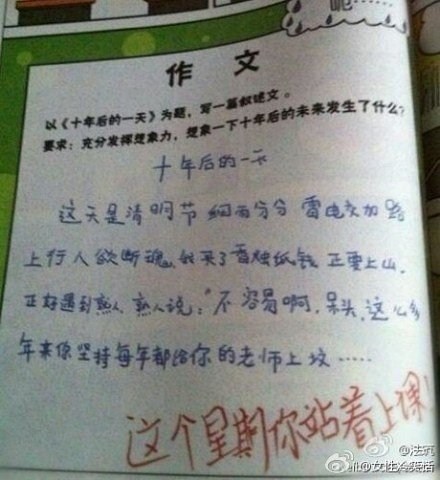 呃……
作 文
以《十年后的一天》为题，写一篇叙述文。
要求：充分发挥想象力，想象一下十年后的未来发生了什么？
十年后的一天
这天是清明节 细雨分分 雷电交加 路
上行人欲断魂，我买了香烛纸钱 正要上山，
正好遇到熟人，熟人说：“不容易啊，呆头，这么多
年来你坚持每年都给你的老师上坟……
这个星期你站着上课！
@法
@女性